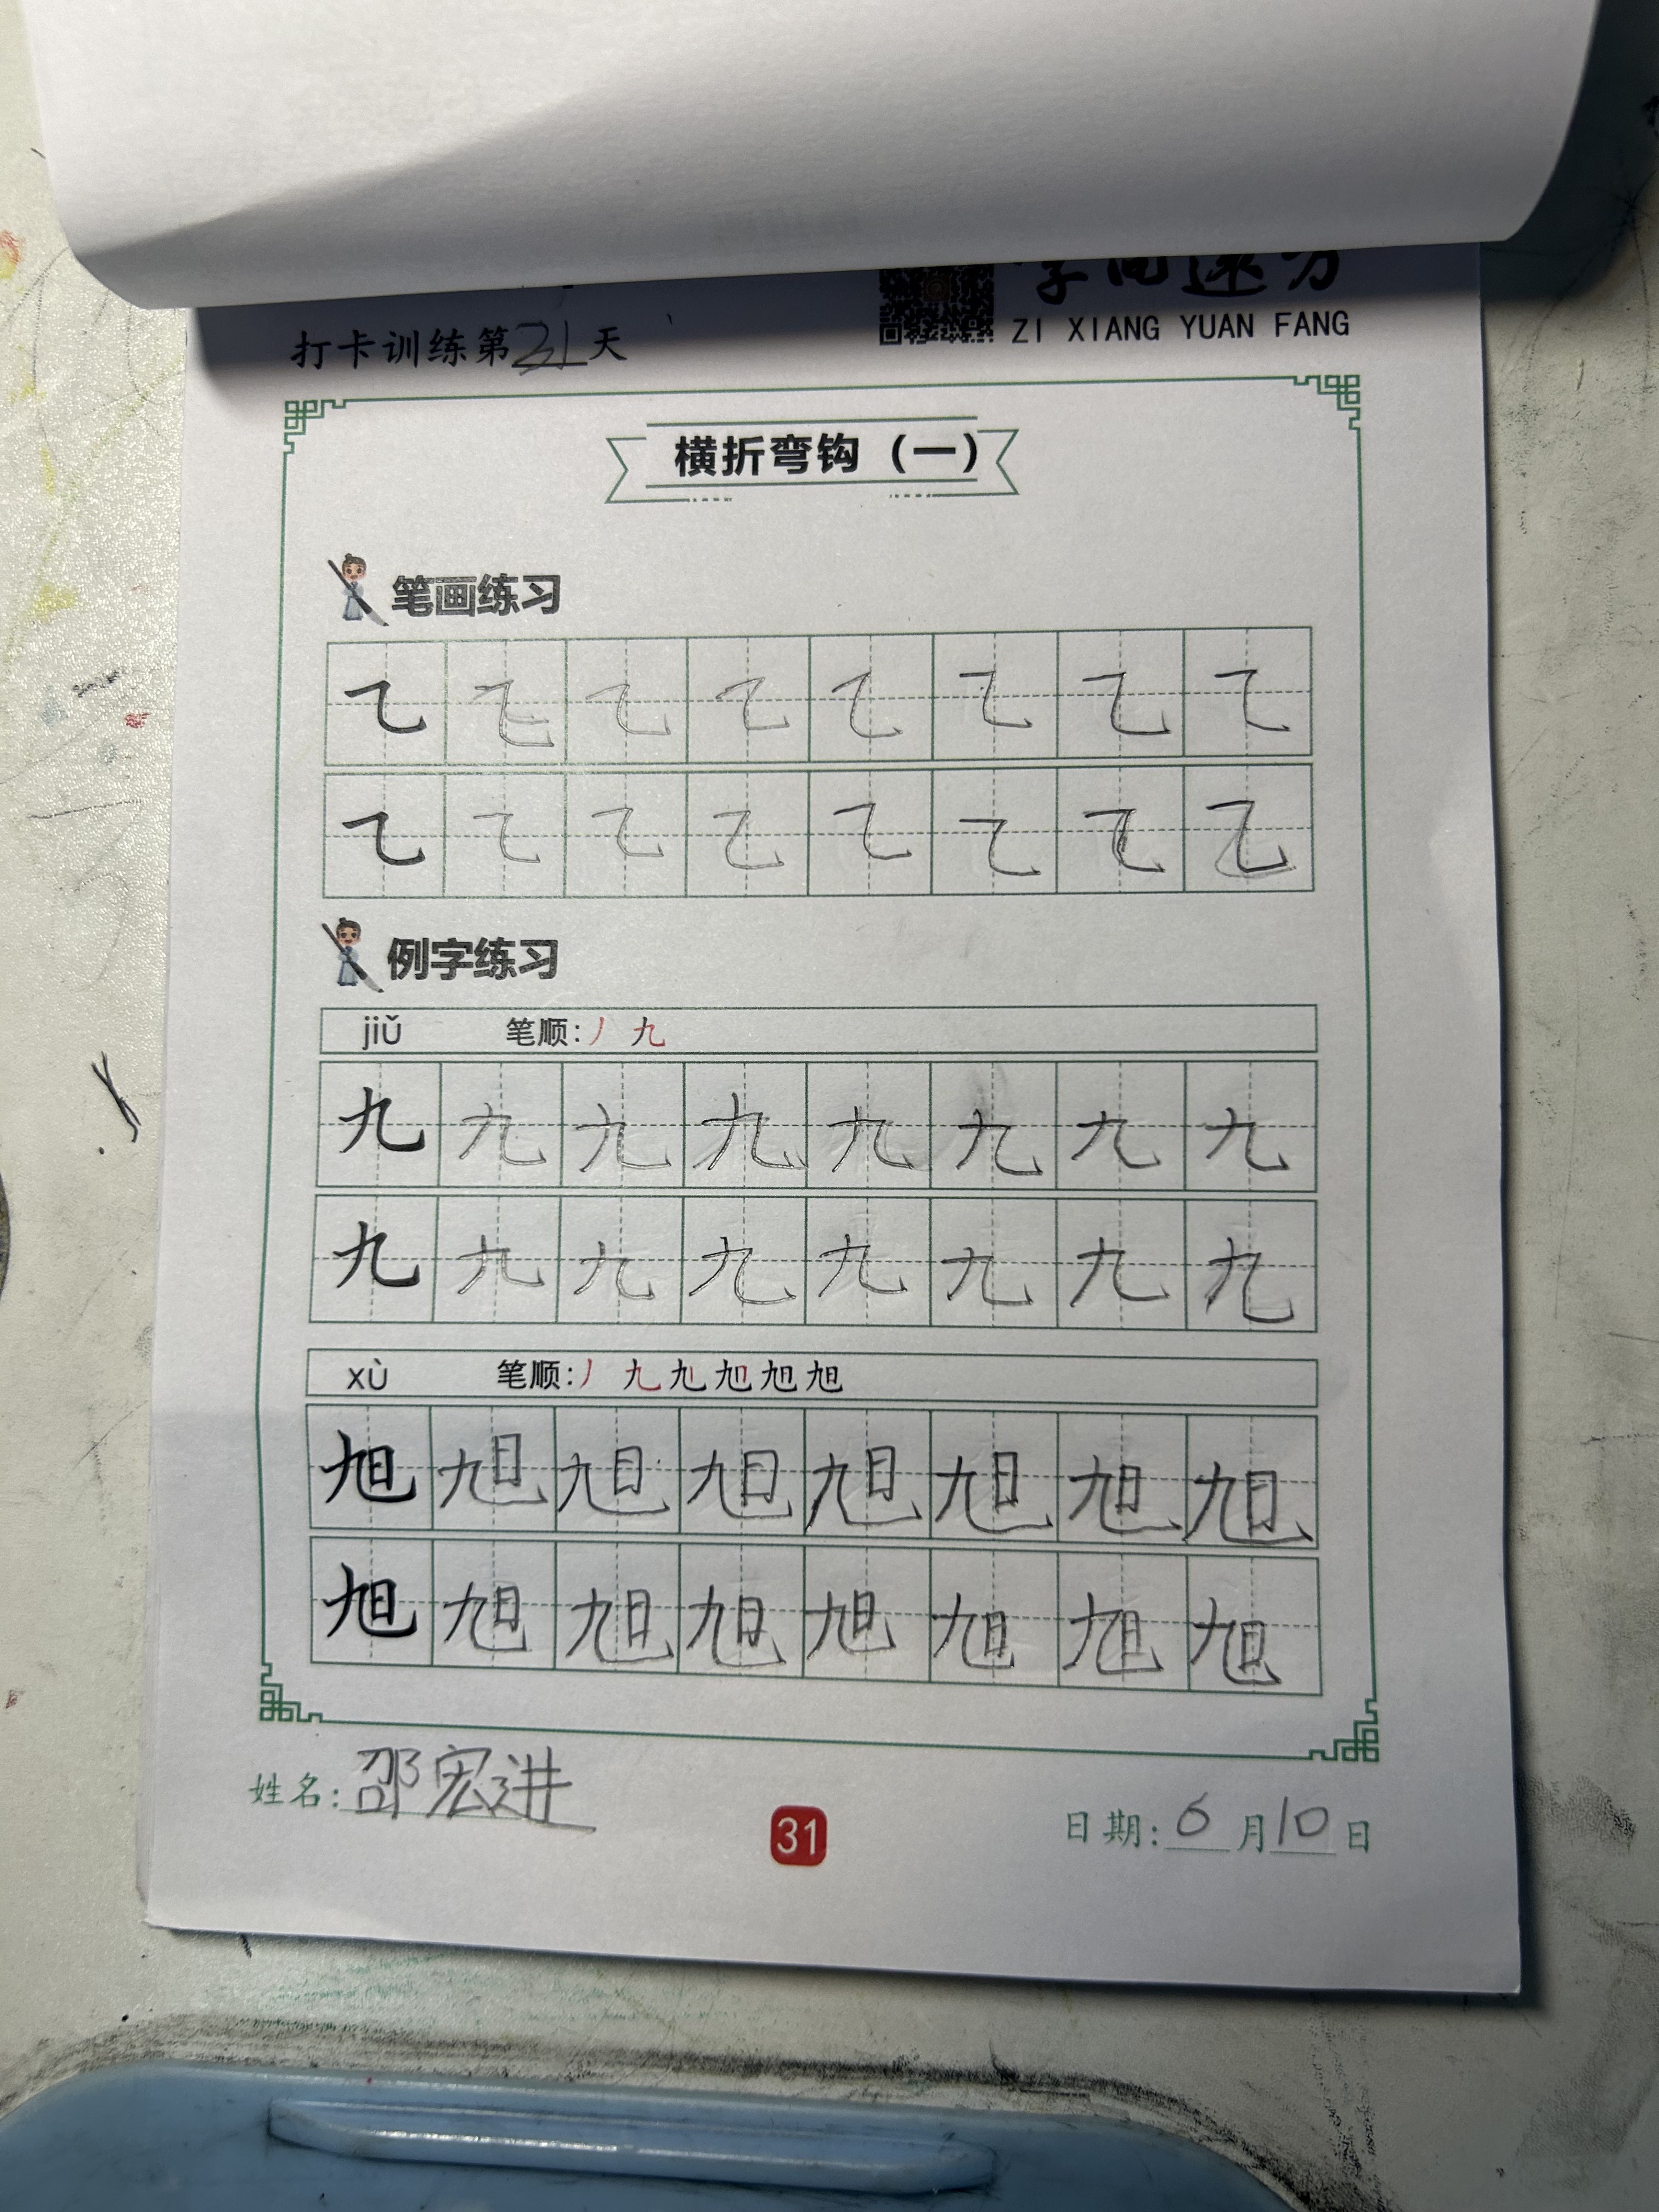 ZI XIANG YUAN FANG
打卡训练第31天
横折弯钩（一）
笔画练习
㇈ ㇈ ㇈ ㇈ ㇈ ㇈ ㇈ ㇈
㇈ ㇈ ㇈ ㇈ ㇈ ㇈ ㇈ ㇈
例字练习
jiǔ 笔顺：丿 九
九 九 九 九 九 九 九 九
九 九 九 九 九 九 九 九
xù 笔顺：丿 九 旭 旭 旭 旭
旭 旭 旭 旭 旭 旭 旭 旭
旭 旭 旭 旭 旭 旭 旭 旭
姓名：邵宏进
31
日期：6月10日